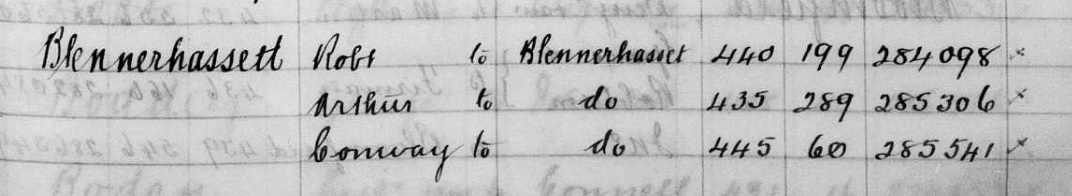 Blennerhassett Robt to Blennerhasset 440 199 284098 x
Arthur to do 435 289 285306 x
Conway to do 445 60 285541 x